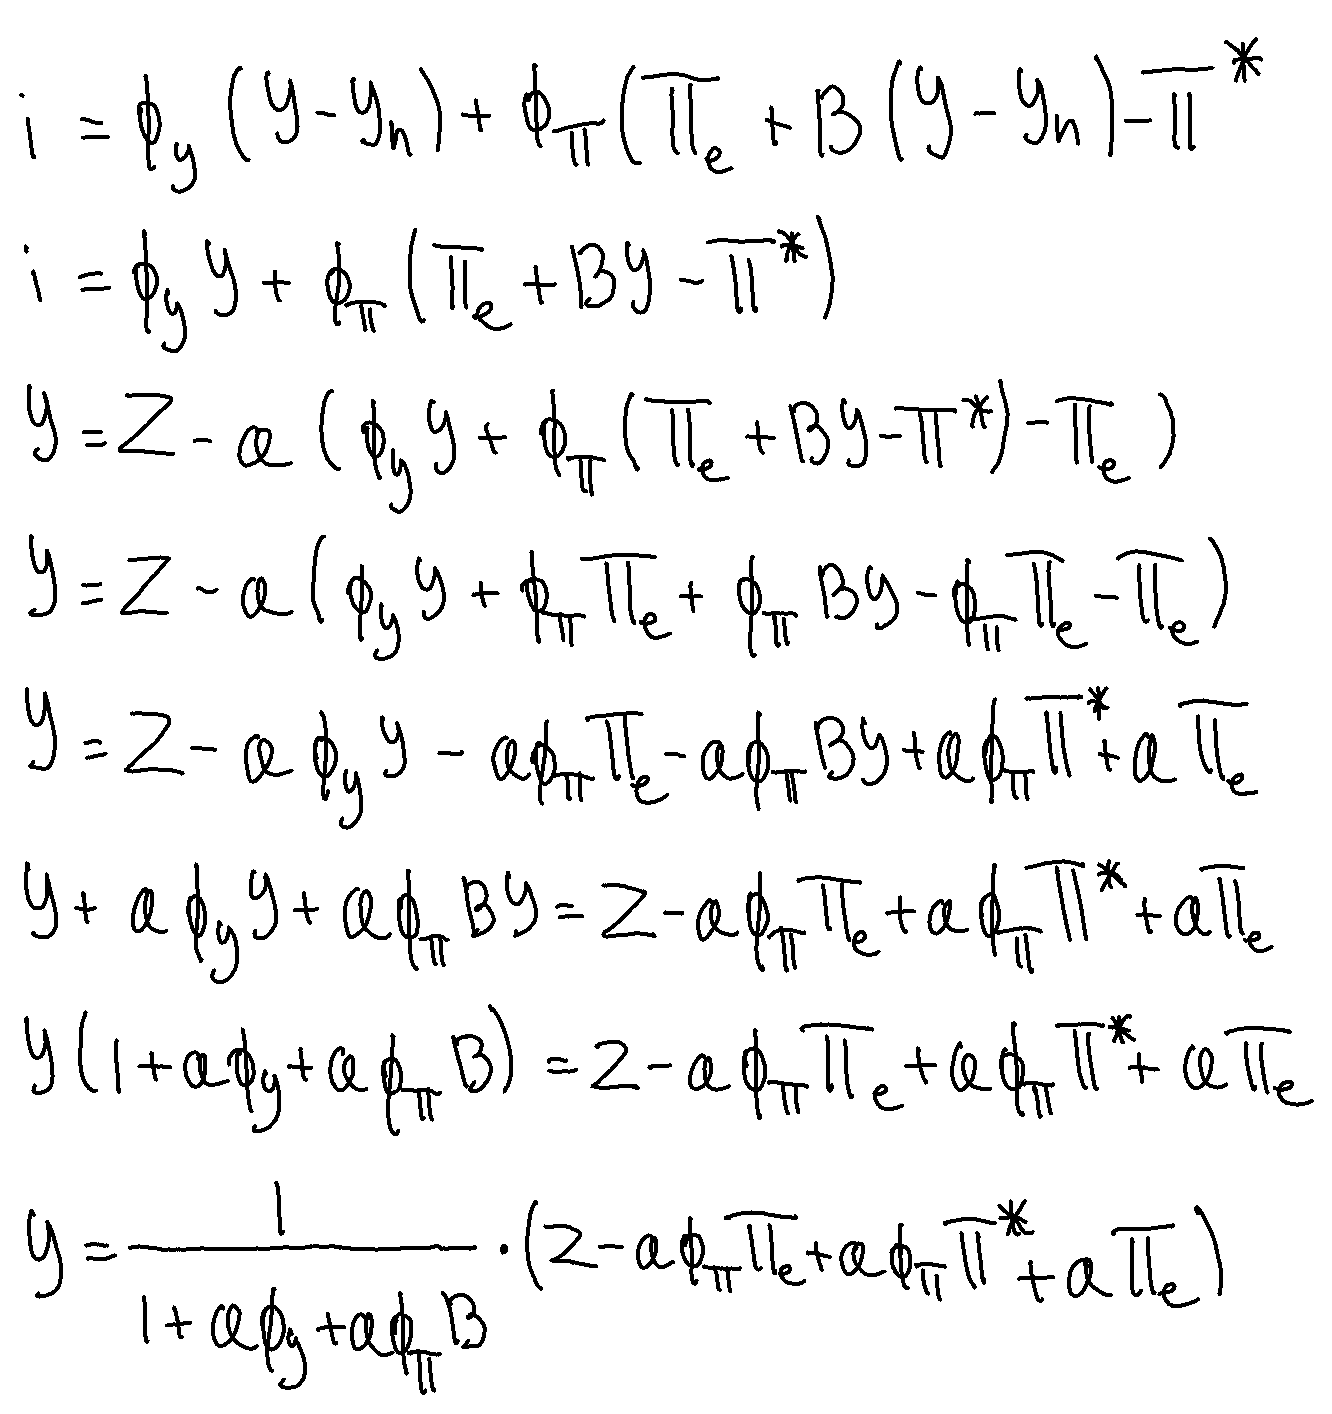 i = ϕ_y (y - y_n) + ϕ_π (π_e + B (y - y_n) - π*
i = ϕ_y y + ϕ_π (π_e + By - π*)
y = Z - a (ϕ_y y + ϕ_π (π_e + By - π*) - π_e)
y = Z - a (ϕ_y y + ϕ_π π_e + ϕ_π By - ϕ_π π_e - π_e)
y = Z - a ϕ_y y - a ϕ_π π_e - a ϕ_π By + a ϕ_π π* + a π_e
y + a ϕ_y y + a ϕ_π By = Z - a ϕ_π π_e + a ϕ_π π* + a π_e
y (1 + a ϕ_y + a ϕ_π B) = Z - a ϕ_π π_e + a ϕ_π π* + a π_e
y = 1 / (1 + a ϕ_y + a ϕ_π B) · (Z - a ϕ_π π_e + a ϕ_π π* + a π_e)